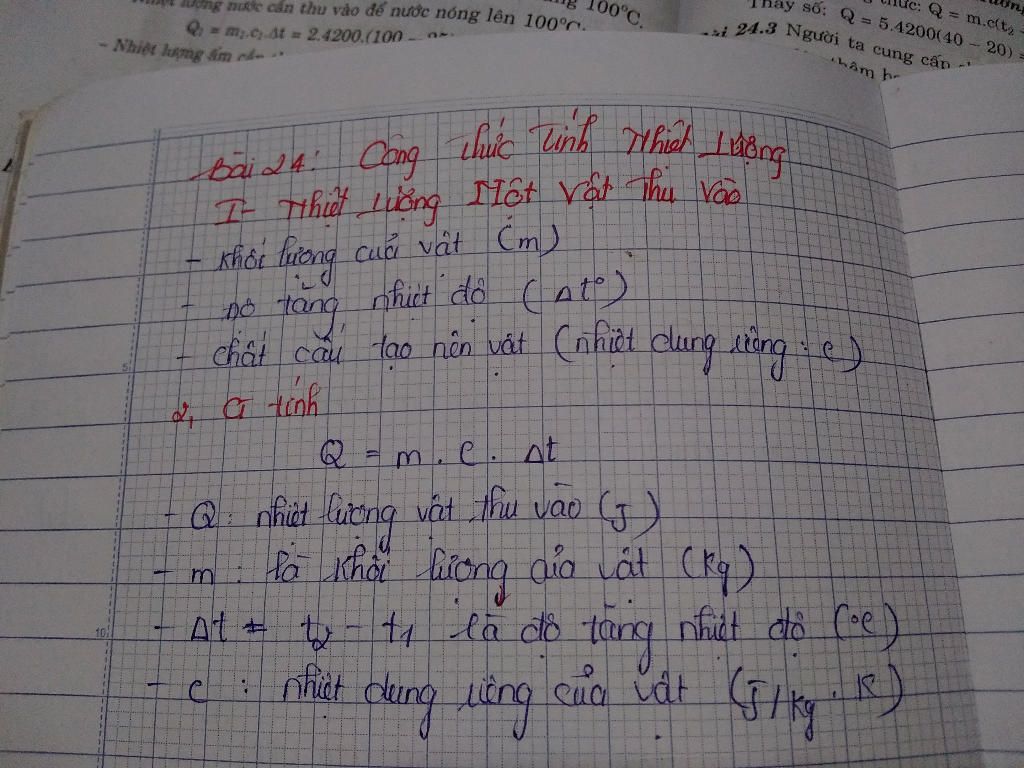 Nhiệt lượng nước cần thu vào để nước nóng lên 100°C.
Q₁ = m₁.c₁.Δt = 2.4200.(100 –
– Nhiệt lượng ấm cần
100°C.
thức: Q = m.c(t₂
Thay số: Q = 5.4200(40 – 20) =
24.3 Người ta cung cấp
Bài 24: Công thức Tính Nhiệt Lượng
I- Nhiệt Lượng Một Vật Thu Vào
- Khối lượng của vật (m)
- Độ tăng nhiệt độ (Δt°)
- chất cấu tạo nên vật (nhiệt dung riêng : c)
2, CT tính
Q = m . c . Δt
- Q : nhiệt lượng vật thu vào (J)
- m : là khối lượng của vật (kg)
- Δt = t₂ - t₁ là độ tăng nhiệt độ (°c)
- c : nhiệt dung riêng của vật (J/kg . K)
5
10